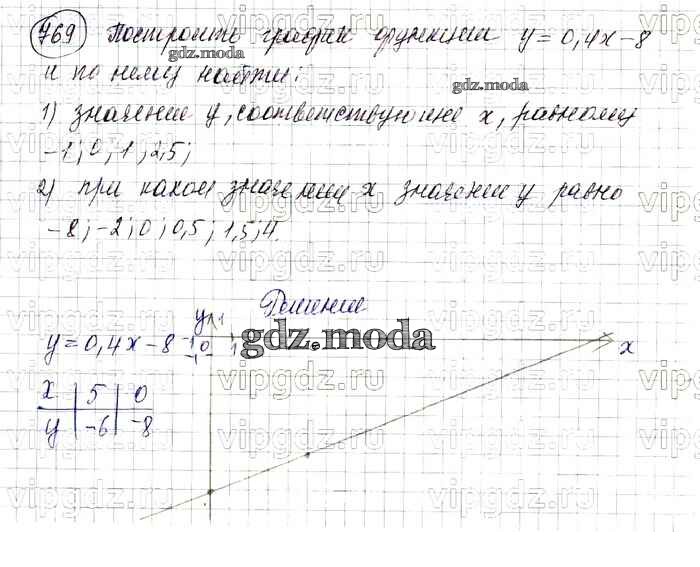 769 Построить график функции y=0,4x-8
и по нему найти:
1) значение y, соответствующие x, равному
-1; 0; 1; 2,5;
2) при каком значении x значение y равно
-8; -2; 0; 0,5; 1,5; 4.
Решение
y=0,4x-8
x 5 0
y -6 -8
y 1
-1 0 1 x
-1
gdz.moda
gdz.moda
gdz.moda
vipgdz.ru